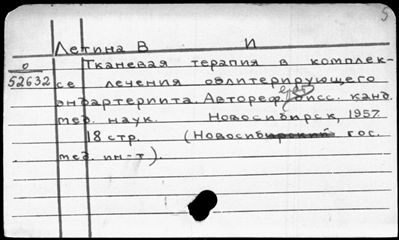 5
Летина В И
0 Тканевая терапия в комплек-
52632 се лечения облитерирующего
эндартериита. Автореф. дисс. канд.
мед. наук. Новосибирск, 1957.
18 стр. (Новосибирский гос.
мед. ин-т).